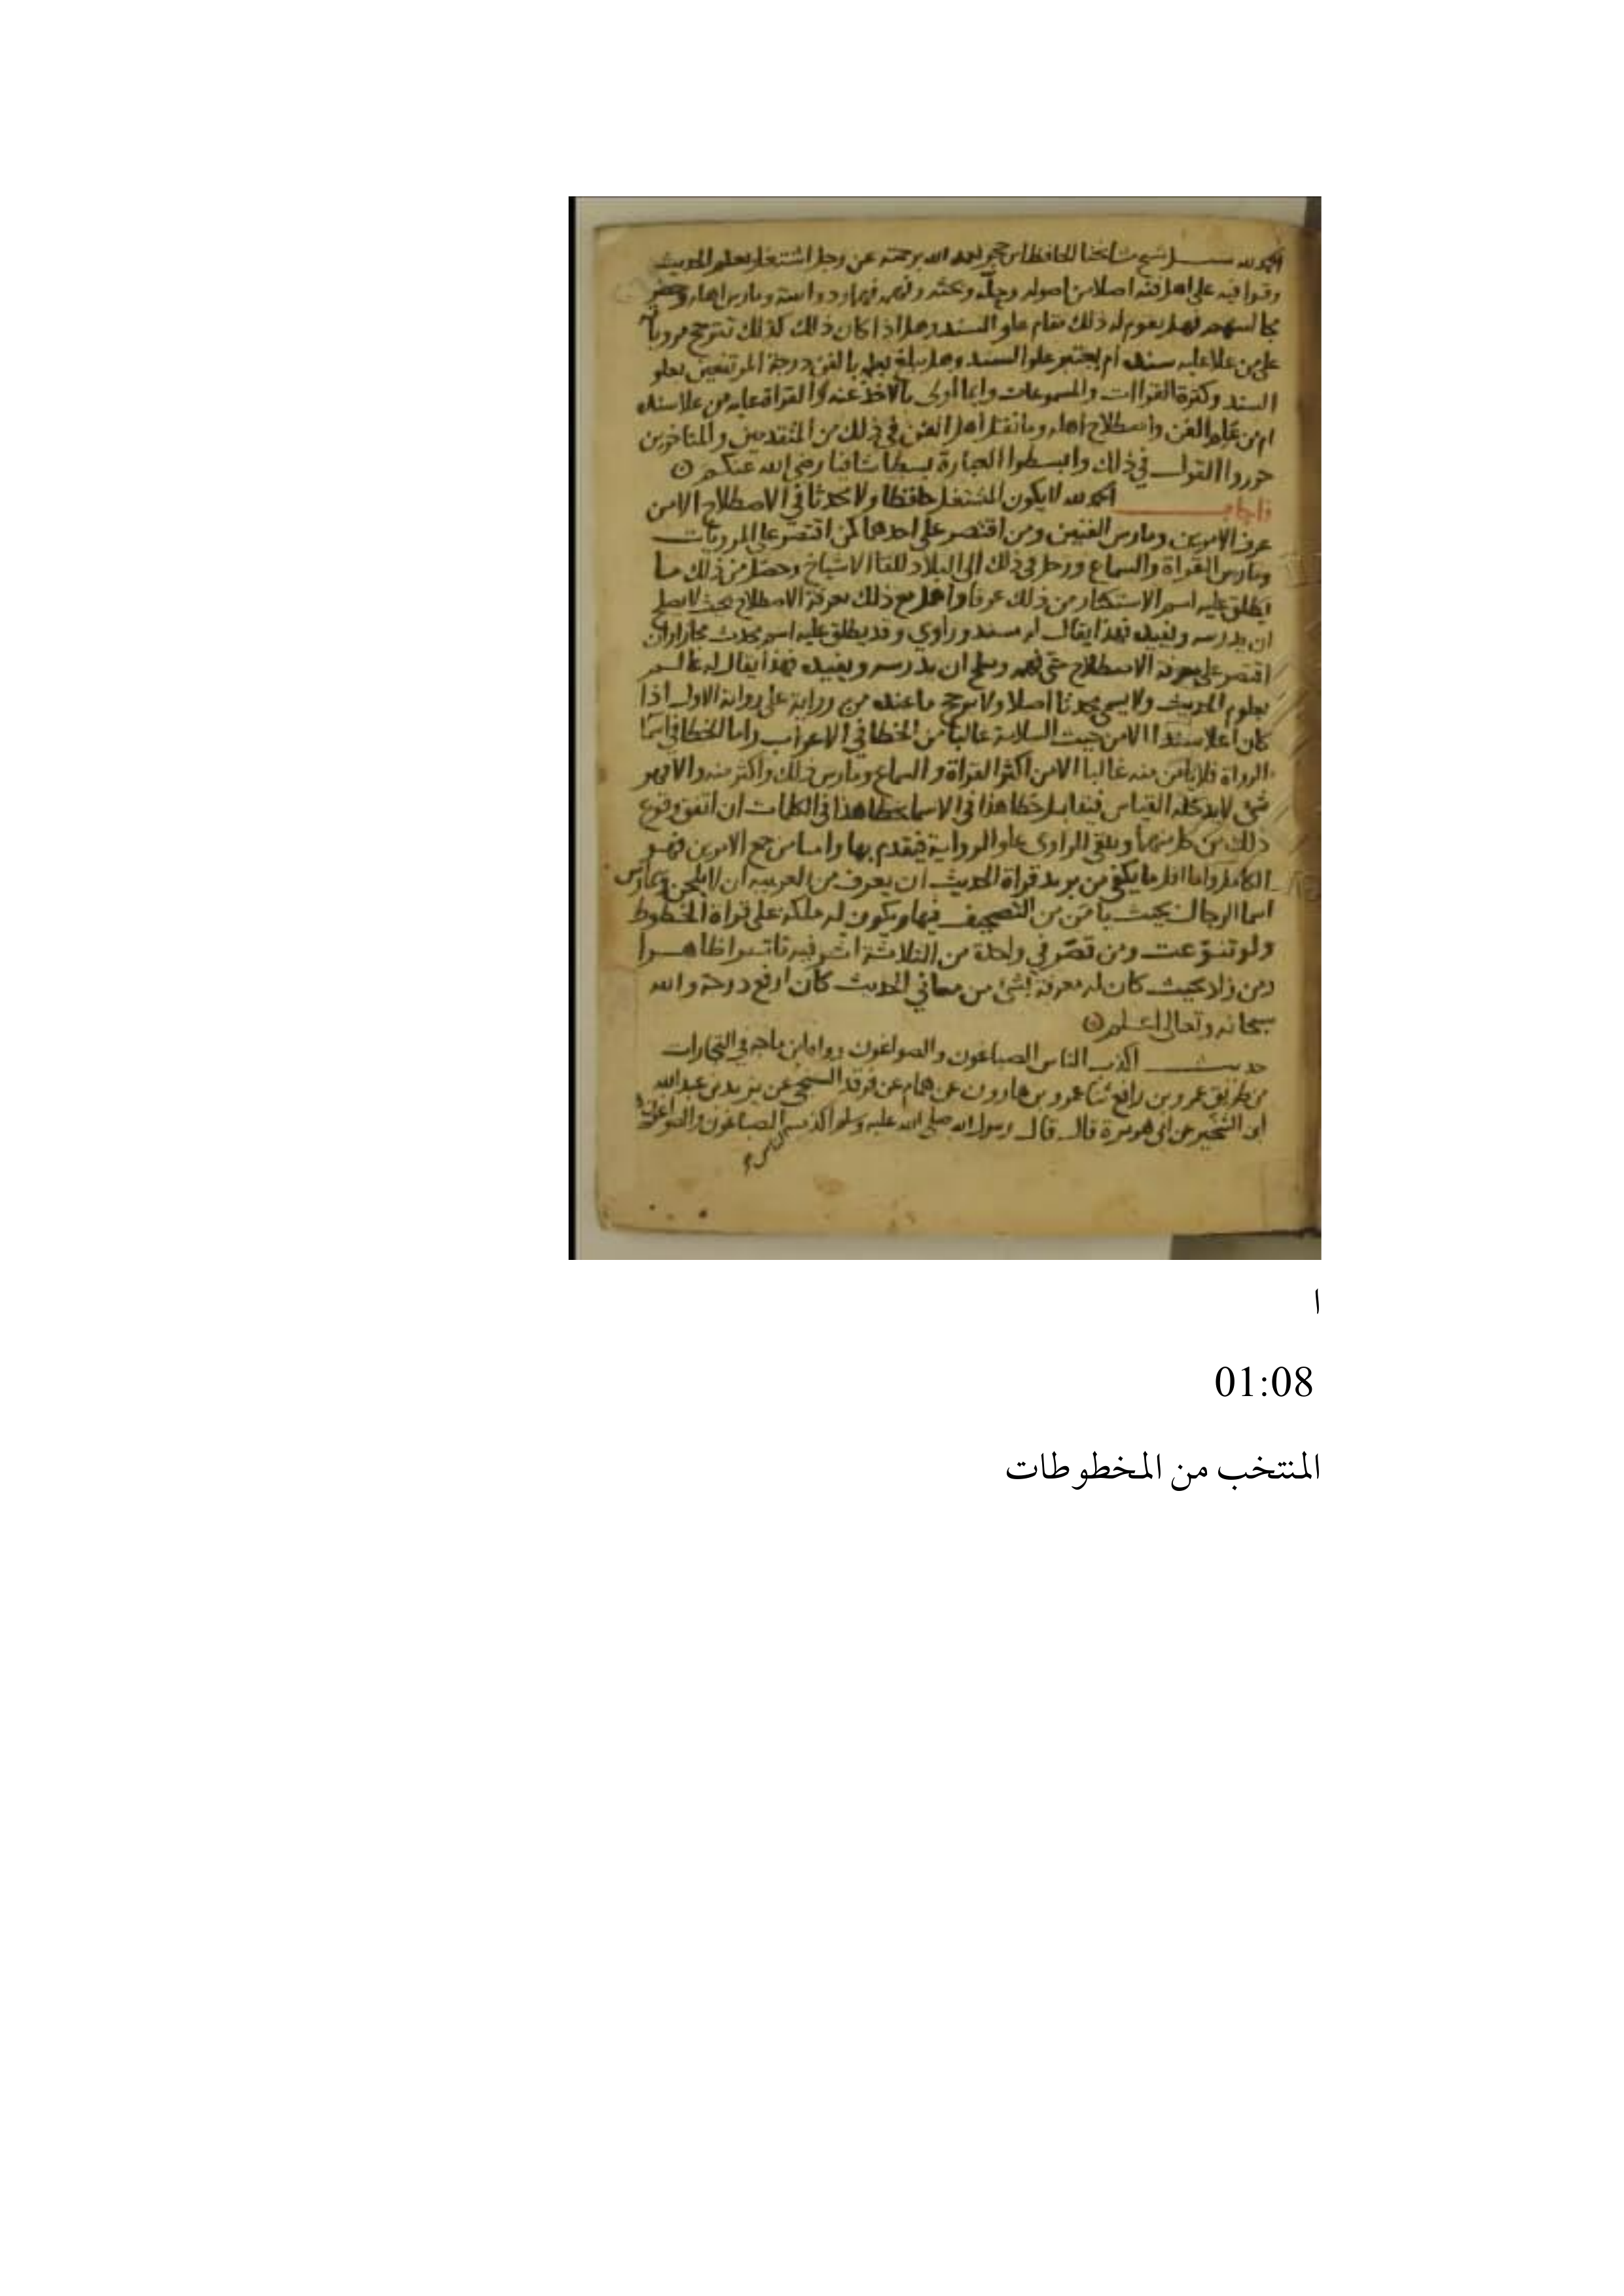 الحمد لله سئل شيخ مشايخنا الحافظ ابن حجر تغمده الله برحمته عن رجل اشتغل بعلم الحديث
وقرا فيه على اهل فنه اصلا من اصوله وحله وبحثه وفهمه ومارس اهله وحضر
مجالسهم فهل يقوم له ذلك مقام علو السند وهل اذا كان ذلك كذلك تترجح مروياته
على من علا عليه سنده أم يعتبر علو السند وهل يبلغ بعلمه بالفن درجة المرتفعين بعلو
السند وكثرة القراات والمسموعات وايما أولى بالاخذ عنه والقراة عليه من علا سنده
ام من علم الفن واصطلاح اهله وما نقل اهل الفن في ذلك من المتقدمين والمتاخرين
حرروا القول في ذلك وابسطوا العبارة بسطا شافيا رضي الله عنكم
فاجاب الحمد لله لا يكون المشتغل حافظا ولا محدثا في الاصطلاح الا من
عرف الامرين ومارس الفنين ومن اقتصر على احدهما كمن اقتصر على المرويات
ومارس القراة والسماع ورحل في ذلك الى البلاد للقا الاشياخ وحصل من ذلك ما
يطلق عليه اسم الاستكثار من ذلك عرفا واهمل مع ذلك معرفة الاصطلاح بحيث لا يصلح
ان يدرسه ويفيده فهذا يقال له مسند وراوي وقد يطلق عليه اسم محدث مجازا وان
اقتصر على معرفة الاصطلاح حتى فهمه وصلح ان يدرسه ويفيده فهذا يقال له عالم
بعلوم الحديث ولا يسمى محدثا اصلا ولا يرجح ما عنده من رواية على رواية الاول اذا
كان اعلا سندا الا من حيث السلامة غالبا من الخطا في الاعراب واما الخطا في اسما
الرواة فلا يامن منه غالبا الا من اكثر القراة والسماع ومارس ذلك واكثر منه والا فهو
شي لا يدخله القياس فيتقابل خطا هذا في الاسما بخطا هذا في الكلمات ان اتفق وقوع
ذلك من كل منهما ويبقى للراوي علو الرواية فيقدم بها واما من جمع الامرين فهو
الكامل واما اقل ما يكفي من يريد قراة الحديث ان يعرف من العربية ان لا يلحن ويمارس
اسما الرجال بحيث يامن من التصحيف فيها ويكون له ملكة على قراة الخطوط
ولو تنوعت ومن قصر في واحدة من الثلاثة اثر فيه تاثيرا ظاهرا
ومن زاد بحيث كان له معرفة بشئ من معاني الحديث كان ارفع درجة والله
سبحانه وتعالى اعلم
حديث اكذب الناس الصباغون والصواغون رواه ابن ماجه في التجارات
من طريق عمرو بن رافع ثنا عمر بن هارون عن همام عن فرقد السبخي عن يزيد بن عبد الله
ابن الشخير عن ابي هريرة قال قال رسول الله صلى الله عليه وسلم اكذب الناس الصباغون والصواغون
ا
01:08
المنتخب من المخطوطات